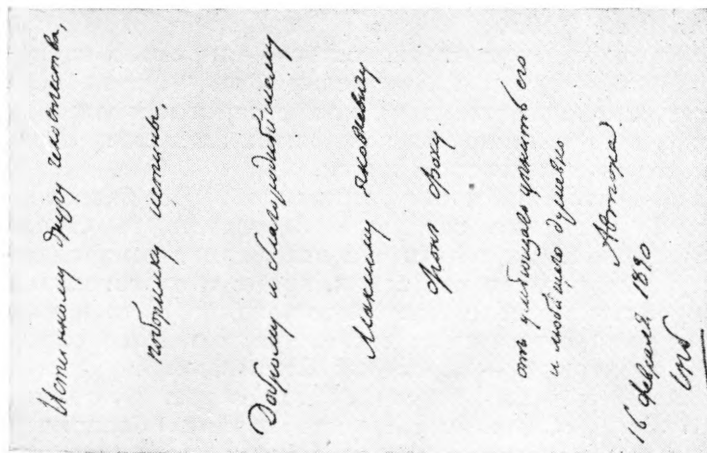 Истинному другу человечества,
поборнику истины,
Доброму и благороднейшему
Максиму Яковлевичу
фонъ Фоку
отъ умѣющаго цѣнить его
и любящего душевно
Автора
16 февраля 1830
СПб